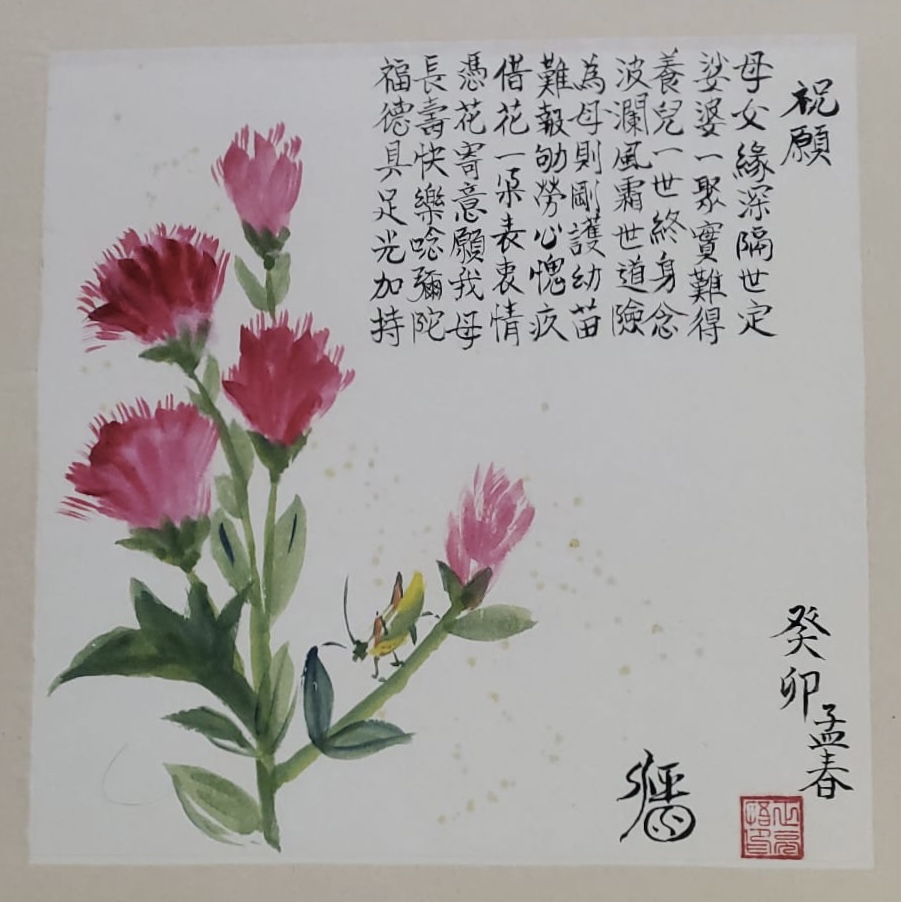 祝願
母女緣深隔世定
娑婆一聚實難得
養兒一世終身念
波瀾風霜世道險
為母則剛護幼苗
難報劬勞心愧疚
借花一朵表衷情
憑花寄意願我母
長壽快樂唸彌陀
福德具足光加持
癸卯
孟春